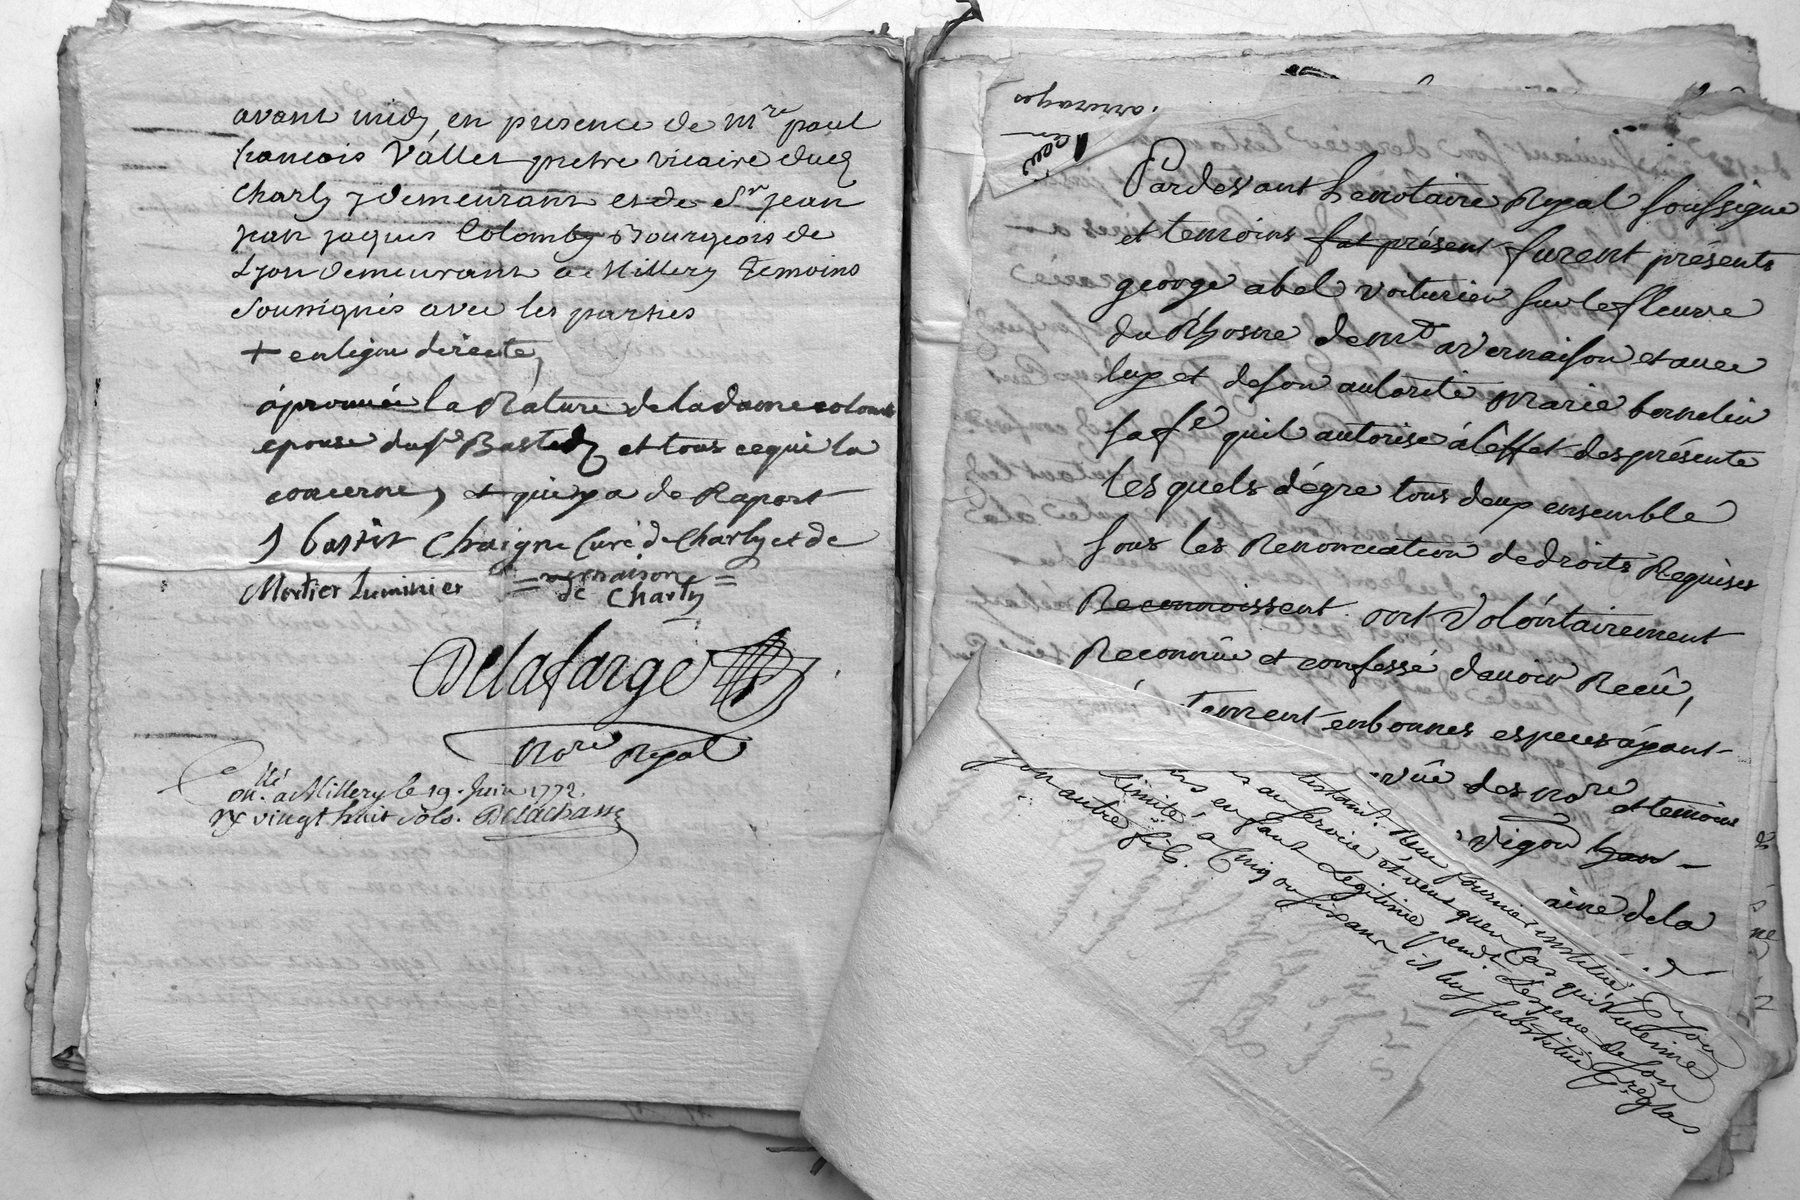 avant midy, en presence de Mre paul
francois Valles pretre vicaire dud
Charly y demeurant et de Sr jean
jean jaques Colomby Bourgeois de
Lyon demeurant a Millery Temoins
Soussignés avec les parties
+ en ligne directe,
áprouvée la Rature de la dame colomb
epouse du sr Bastid et tous ce qui la
concerne, et qui y a de Raport
J bastit Chaigne Curé de Charly et de
Mortier Luminier = vernaison =
de Charly
Delafarge
Nore Royal
Conllé a Millery le 19. Juin 1772.
Rx vingt huit sols. Delachasse
arrerages
Pardevant Le notaire Royal soussigne
et temoins fut présent furent présents
george abel voiturier sur le fleuve
du Rhosne demt a Vernaison et avec
luy et de son autorité Marie bornelin
sa fe quil autorise á lêffet des présente
Lesquels dégre tous deux ensemble
sous les Renonciation de droits Requises
Reconnoissent ont Volóntairement
Reconnû et confessé davoir Recû,
tement en bonnes especes áyant
vûe des Nore et temoins
Vigon
aine de la
testant. Neuf fournier institué
au service et veut quen Cas quil vienne
en fant Legitime pendt Lespace de son
limité a Cinq ou six ans il luy substitue
son autre fils.